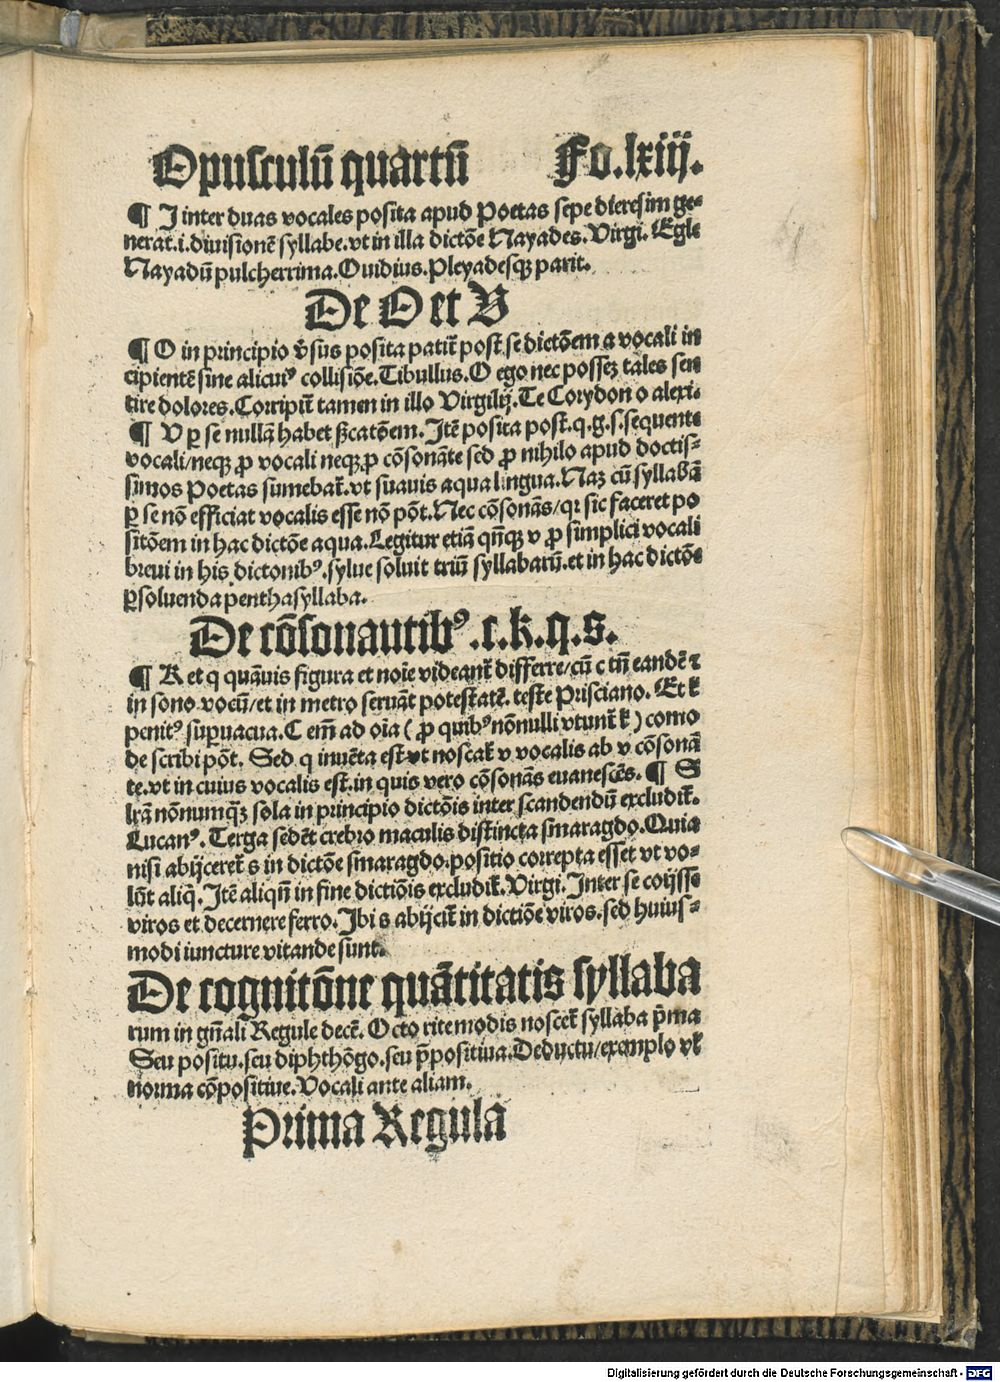 Opusculū quartū Fo.lxiij.
¶ J inter duas vocales posita apud Poetas sepe dieresim ge⸗
nerat.i.diuisionē syllabe.vt in illa dictōe Nayades.Virgi. Egle
Nayadū pulcherrima.Ouidius.Pleyadesqꝫ parit.
De O et V
¶ O in principio v̄sus posita patit̄ post se dictōem a vocali in
cipientē sine alicuiꝰ collisiōe.Tibullus.O ego nec posseꝫ tales sen
tire dolores.Corripit̄ tamen in illo Virgilij.Te Corydon o alexi.
¶ V ꝑ se nullā habet ßcatōem.Jtē posita post.q.g.s.sequente
vocali/neqꝫ ꝓ vocali neqꝫ ꝓ cōsonāte sed ꝓ nihilo apud doctis⸗
simos Poetas sumebat̄.vt suauis aqua lingua.Naꝫ cū syllabā
ꝑ se nō efficiat vocalis esse nō pōt.Nec cōsonās/qꝛ sic faceret po
sitōem in hac dictōe aqua.Legitur etiā qn̄qꝫ v ꝓ simplici vocali
breui in his dictonibꝰ.sylue soluit triū syllabarū.et in hac dictōe
ꝑsoluenda penthasyllaba.
De cōsonantibꝰ.c.k.q.s.
¶ K et q quāuis figura et noīe videant̄ differre/cū c tn̄ eandē ⁊
in sono vocū/et in metro seruāt potestatē. teste Prisciano. Et k
penitꝰ suꝑuacua.C em̄ ad oīa ( ꝓ quibꝰ nōnulli vtunt̄ k ) como
de scribi pōt. Sed q inuēta est vt noscat̄ v vocalis ab v cōsonā
te.vt in cuius vocalis est.in quis vero cōsonās euanescēs. ¶ S
lrā nōnumqꝫ̄ sola in principio dictōis inter scandendū excludit̄.
Lucanꝰ. Terga sedēt crebro maculis distincta smaragdo.Quia
nisi abijceret̄ s in dictōe smaragdo.positio correpta esset vt vo⸗
lūt aliq̄.Jtē aliqn̄ in fine dictiōis excludit̄.Virgi.Inter se coijsse
viros et decernere ferro.Jbi s abijcit̄ in dictiōe viros.sed huius⸗
modi iuncture vitande sunt.
De cognitōne quātitatis syllaba
rum in gn̄ali Regule decē. Octo rite modis noscet̄ syllaba p̄ma
Seu positu.seu diphthōgo.seu p̄positiua.Deductu/exemplo vł
norma cōpositiue.Vocali ante aliam.
Prima Regula
Digitalisierung gefördert durch die Deutsche Forschungsgemeinschaft - DFG